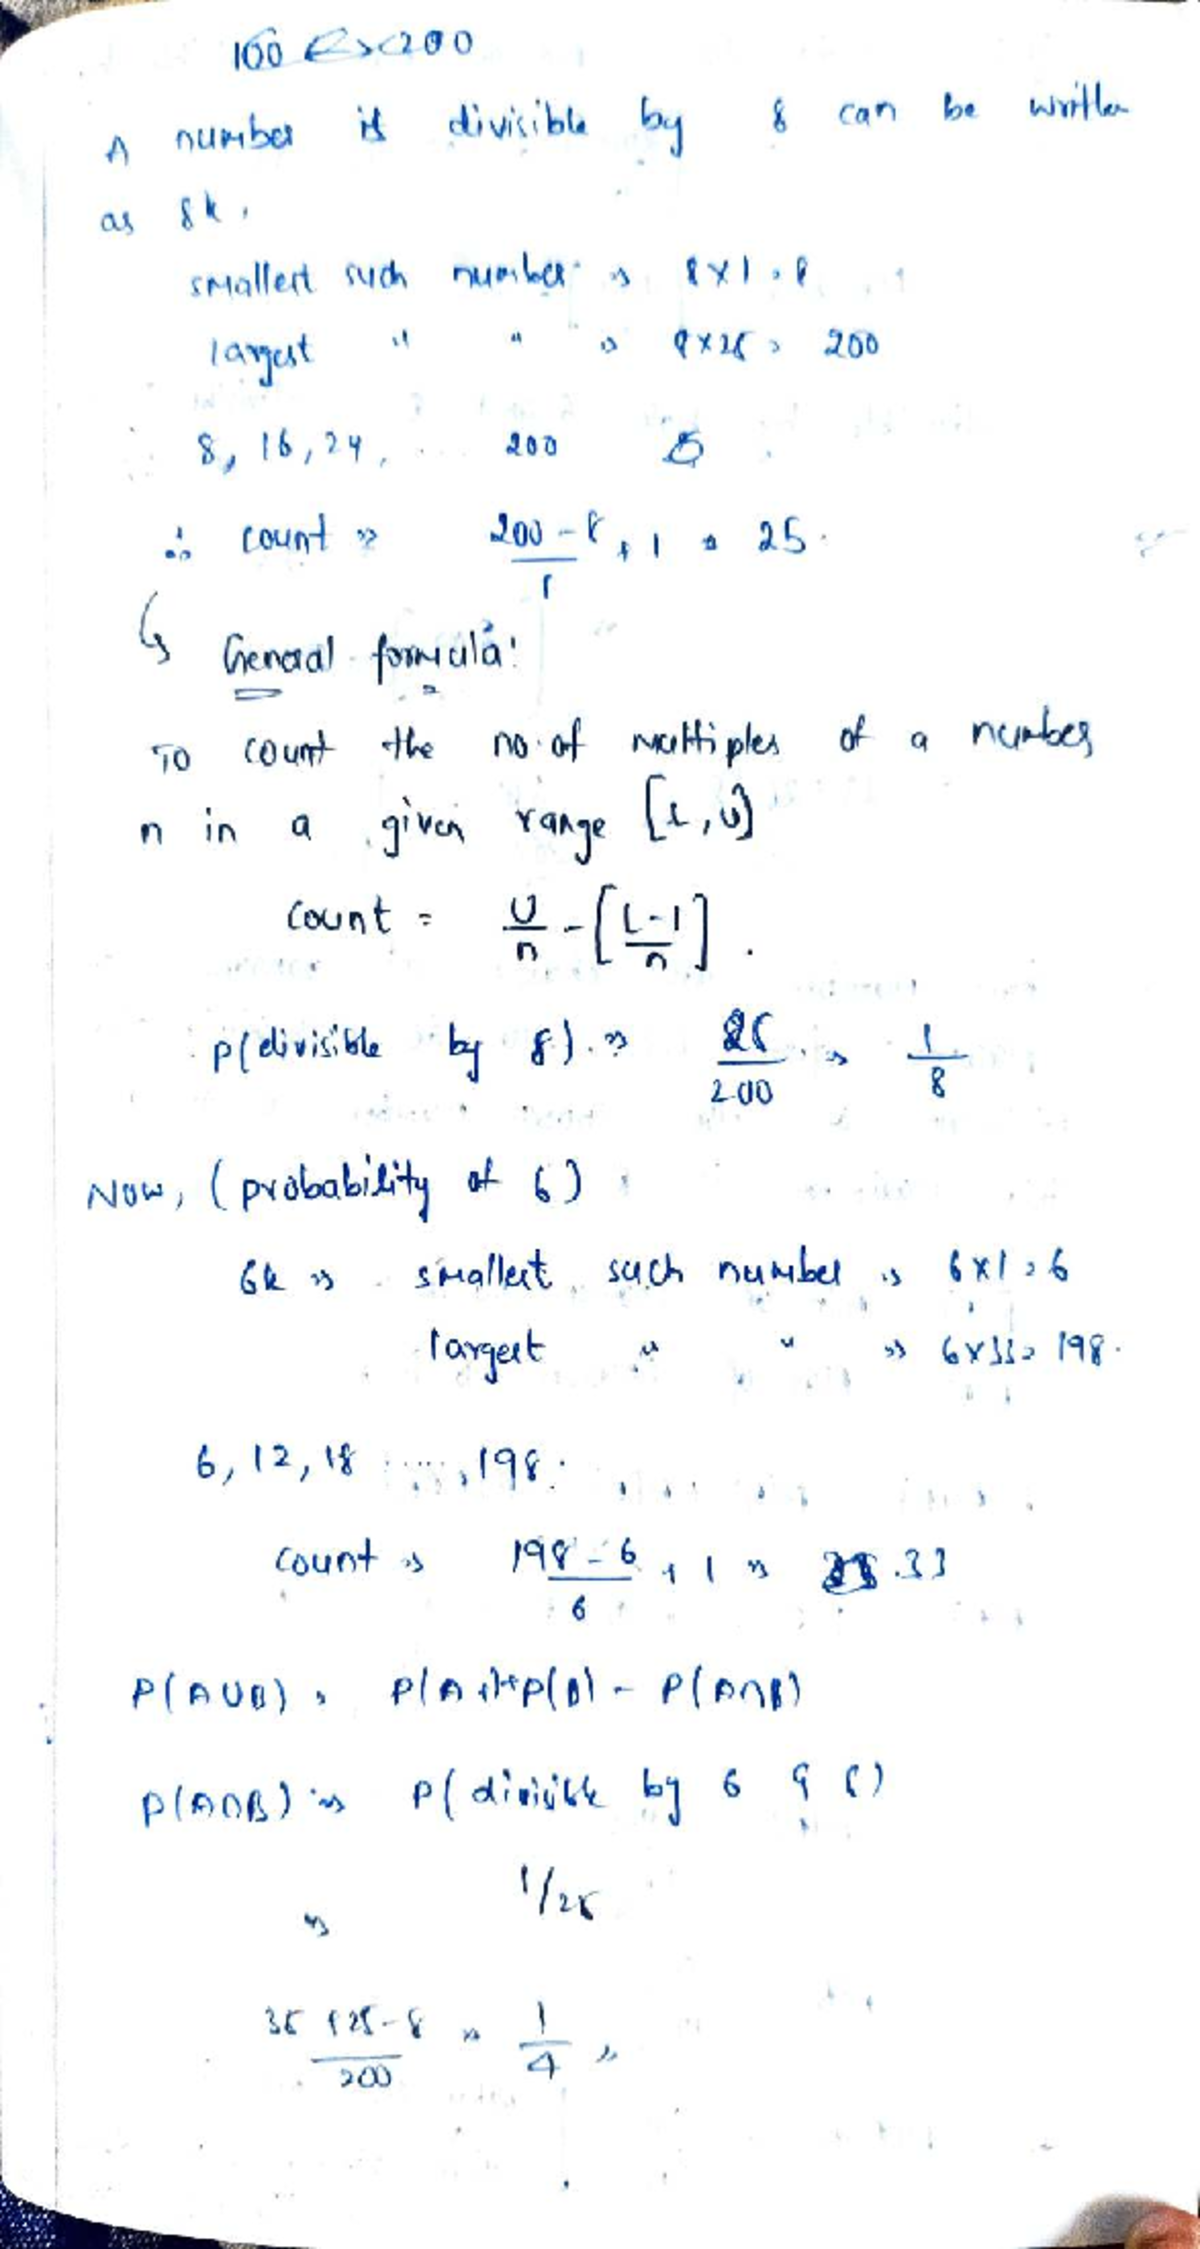 A number is divisible by 8 can be written
as 8k.
smallest such number => 8x1 = 8
largest " " => 8x25 = 200
8, 16, 24, ... 200
∴ count => 200-8/8 + 1 = 25.
General formula:
To count the no. of multiples of a number
n in a given range [L, U]
count = U/n - [L-1/n].
P(divisible by 8) => 25/200 => 1/8
Now, (probability of 6)
6k => smallest such number => 6x1 = 6
largest " " => 6x33 = 198.
6, 12, 18 ....., 198.
count => 198-6/6 + 1 => 33
P(AUB) = P(A)+P(B) - P(A∩B)
P(A∩B) => P(divisible by 6 & 8)
=> 1/25
+25-8/200 => 1/4